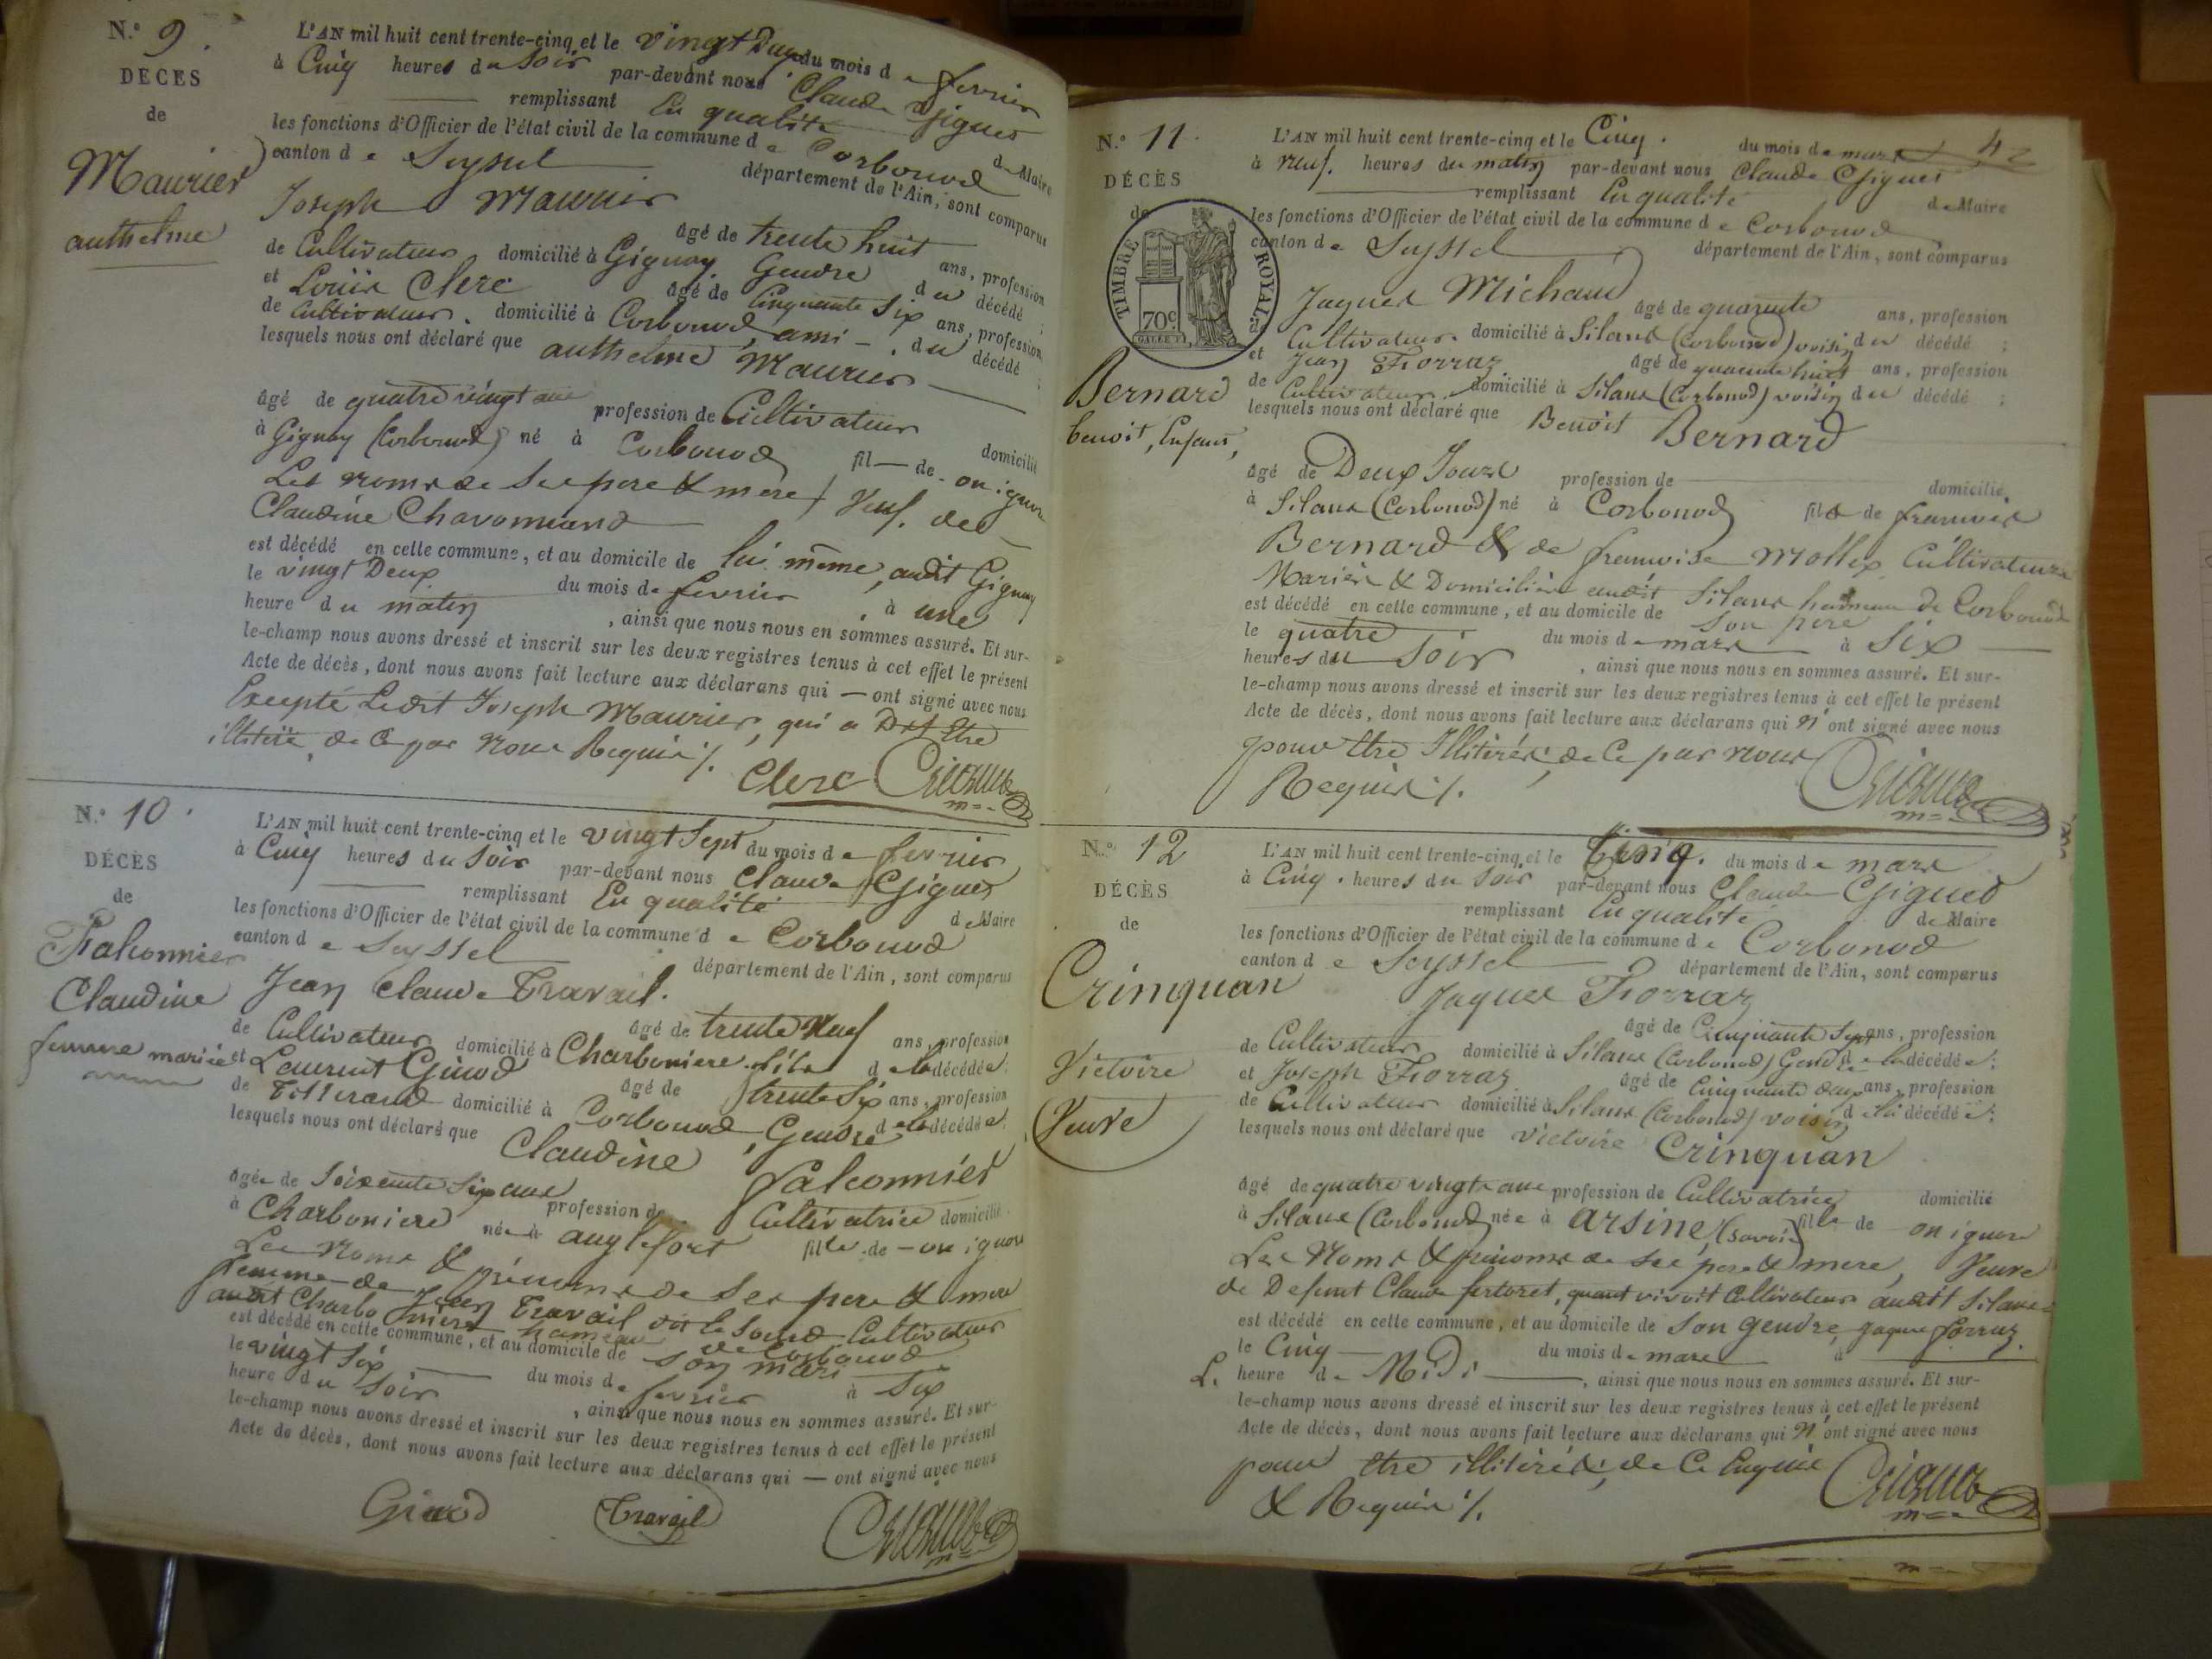 N.° 9.
DÉCÈS
de
Maurier
anthelme
L'AN mil huit cent trente-cinq et le vingt Deux du mois de fevrier
à Cinq heures du Soir par-devant nous Claude Gignes
remplissant En qualité de Maire
les fonctions d'Officier de l'état civil de la commune de Corbonod
canton de Seyssel département de l'Ain, sont comparus
Joseph Maurier
âgé de trente huit ans, profession
de Cultivateur domicilié à Gignay Gendre du décédé;
et Louis Clerc âgé de Cinquante Six ans, profession
de Cultivateur. domicilié à Corbonod, ami du décédé;
lesquels nous ont déclaré que anthelme Maurier
âgé de quatre vingt ans profession de Cultivateur domicilié
à Gignay (Corbonod) né à Corbonod fil de on ignore
Les noms de Ses pere & mere / Veuf. de
Claudine Chavomiand
est décédé en celle commune, et au domicile de lui même, audit Gignay
le vingt Deux du mois de fevrier, à une
heure du matin, ainsi que nous nous en sommes assuré. Et sur-
le-champ nous avons dressé et inscrit sur les deux registres tenus à cet effet le présent
Acte de décès, dont nous avons fait lecture aux déclarans qui — ont signé avec nous
Excepté Ledit Joseph Maurier, qui a Dit être
illitéré, de Ce par nous Requis ./.
Clerc
N.° 10.
DÉCÈS
de
Falconnier
Claudine
femme mariée
L'AN mil huit cent trente-cinq et le vingt Sept du mois de fevrier
à Cinq heures du Soir par-devant nous Claude Gignes
remplissant En qualité de Maire
les fonctions d'Officier de l'état civil de la commune de Corbonod
canton de Seyssel département de l'Ain, sont comparus
Jean Claude Travail.
âgé de trente Neuf ans, profession
de Cultivateur domicilié à Charboniere. fils de la décédée.
et Laurent Ginod âgé de trente Six ans, profession
de Tisserand domicilié à Corbonod, Gendre de la décédée.
lesquels nous ont déclaré que Claudine Falconnier
âgée de Soixante Six ans profession de Cultivatrice domicilié
à Charboniere née à anglefort fille de — on ignore
Les Noms & prénoms de Ses pere & mere
femme de Jean Travail dit le Sourd Cultivateur
audit Charboniere hameau de Corbonod
est décédé en cette commune, et au domicile de son mari
le vingt Six du mois de fevrier à Six
heure du Soir, ainsi que nous nous en sommes assuré. Et sur-
le-champ nous avons dressé et inscrit sur les deux registres tenus à cet effet le présent
Acte de décès, dont nous avons fait lecture aux déclarans qui — ont signé avec nous
Ginod Travail
N.° 11.
42
DÉCÈS
de
TIMBRE ROYAL
70c.
Bernard
benoit, Enfant,
L'AN mil huit cent trente-cinq et le Cinq. du mois de mars
à neuf. heures du matin par-devant nous Claude Gignes
remplissant En qualité de Maire
les fonctions d'Officier de l'état civil de la commune de Corbonod
canton de Seyssel département de l'Ain, sont comparus
Jaques Michaud âgé de quarante ans, profession
de Cultivateur domicilié à Silans (Corbonod) voisin du décédé;
et Jean Forraz âgé de quarante huit ans, profession
de Cultivateur domicilié à Silans (Corbonod) voisin du décédé;
lesquels nous ont déclaré que Benoit Bernard
âgé de Deux Jours profession de domicilié
à Silans (Corbonod) né à Corbonod fils de francois
Bernard & de francoise Mollex Cultivateurs
Mariés & Domiciliés audit Silans hameau de Corbonod
est décédé en celle commune, et au domicile de Son pere
le quatre du mois de mars à Six
heures du Soir, ainsi que nous nous en sommes assuré. Et sur-
le-champ nous avons dressé et inscrit sur les deux registres tenus à cet effet le présent
Acte de décès, dont nous avons fait lecture aux déclarans qui n'ont signé avec nous
pour être Illitérés, de Ce par nous
Requis ./.
N.° 12
DÉCÈS
de
Crinquan
Victoire
Veuve
L'AN mil huit cent trente-cinq et le Cinq. du mois de mars
à Cinq. heures du Soir par-devant nous Claude Gignes
remplissant En qualité de Maire
les fonctions d'Officier de l'état civil de la commune de Corbonod
canton de Seyssel département de l'Ain, sont comparus
Jaques Forraz
âgé de Cinquante Sept ans, profession
de Cultivateur domicilié à Silans (Corbonod) Gendre de la décédée;
et Joseph Forraz âgé de Cinquante deux ans, profession
de Cultivateur domicilié à Silans (Corbonod) voisin de la décédée;
lesquels nous ont déclaré que Victoire Crinquan
âgé de quatre vingts ans profession de Cultivatrice domicilié
à Silans (Corbonod) née à Arsine, (Savoie) fille de on ignore
Les Noms & prénoms de Ses pere & mere, Veuve
de Defunt Claude fertoret, quant vivoit Cultivateur audit Silans
est décédé en celle commune, et au domicile de Son Gendre Jaques forraz.
le Cinq du mois de mars à
L. heure de Midi, ainsi que nous nous en sommes assuré. Et sur-
le-champ nous avons dressé et inscrit sur les deux registres tenus à cet effet le présent
Acte de décès, dont nous avons fait lecture aux déclarans qui n'ont signé avec nous
pour être illitérés, de Ce Enquis
& Requis ./.